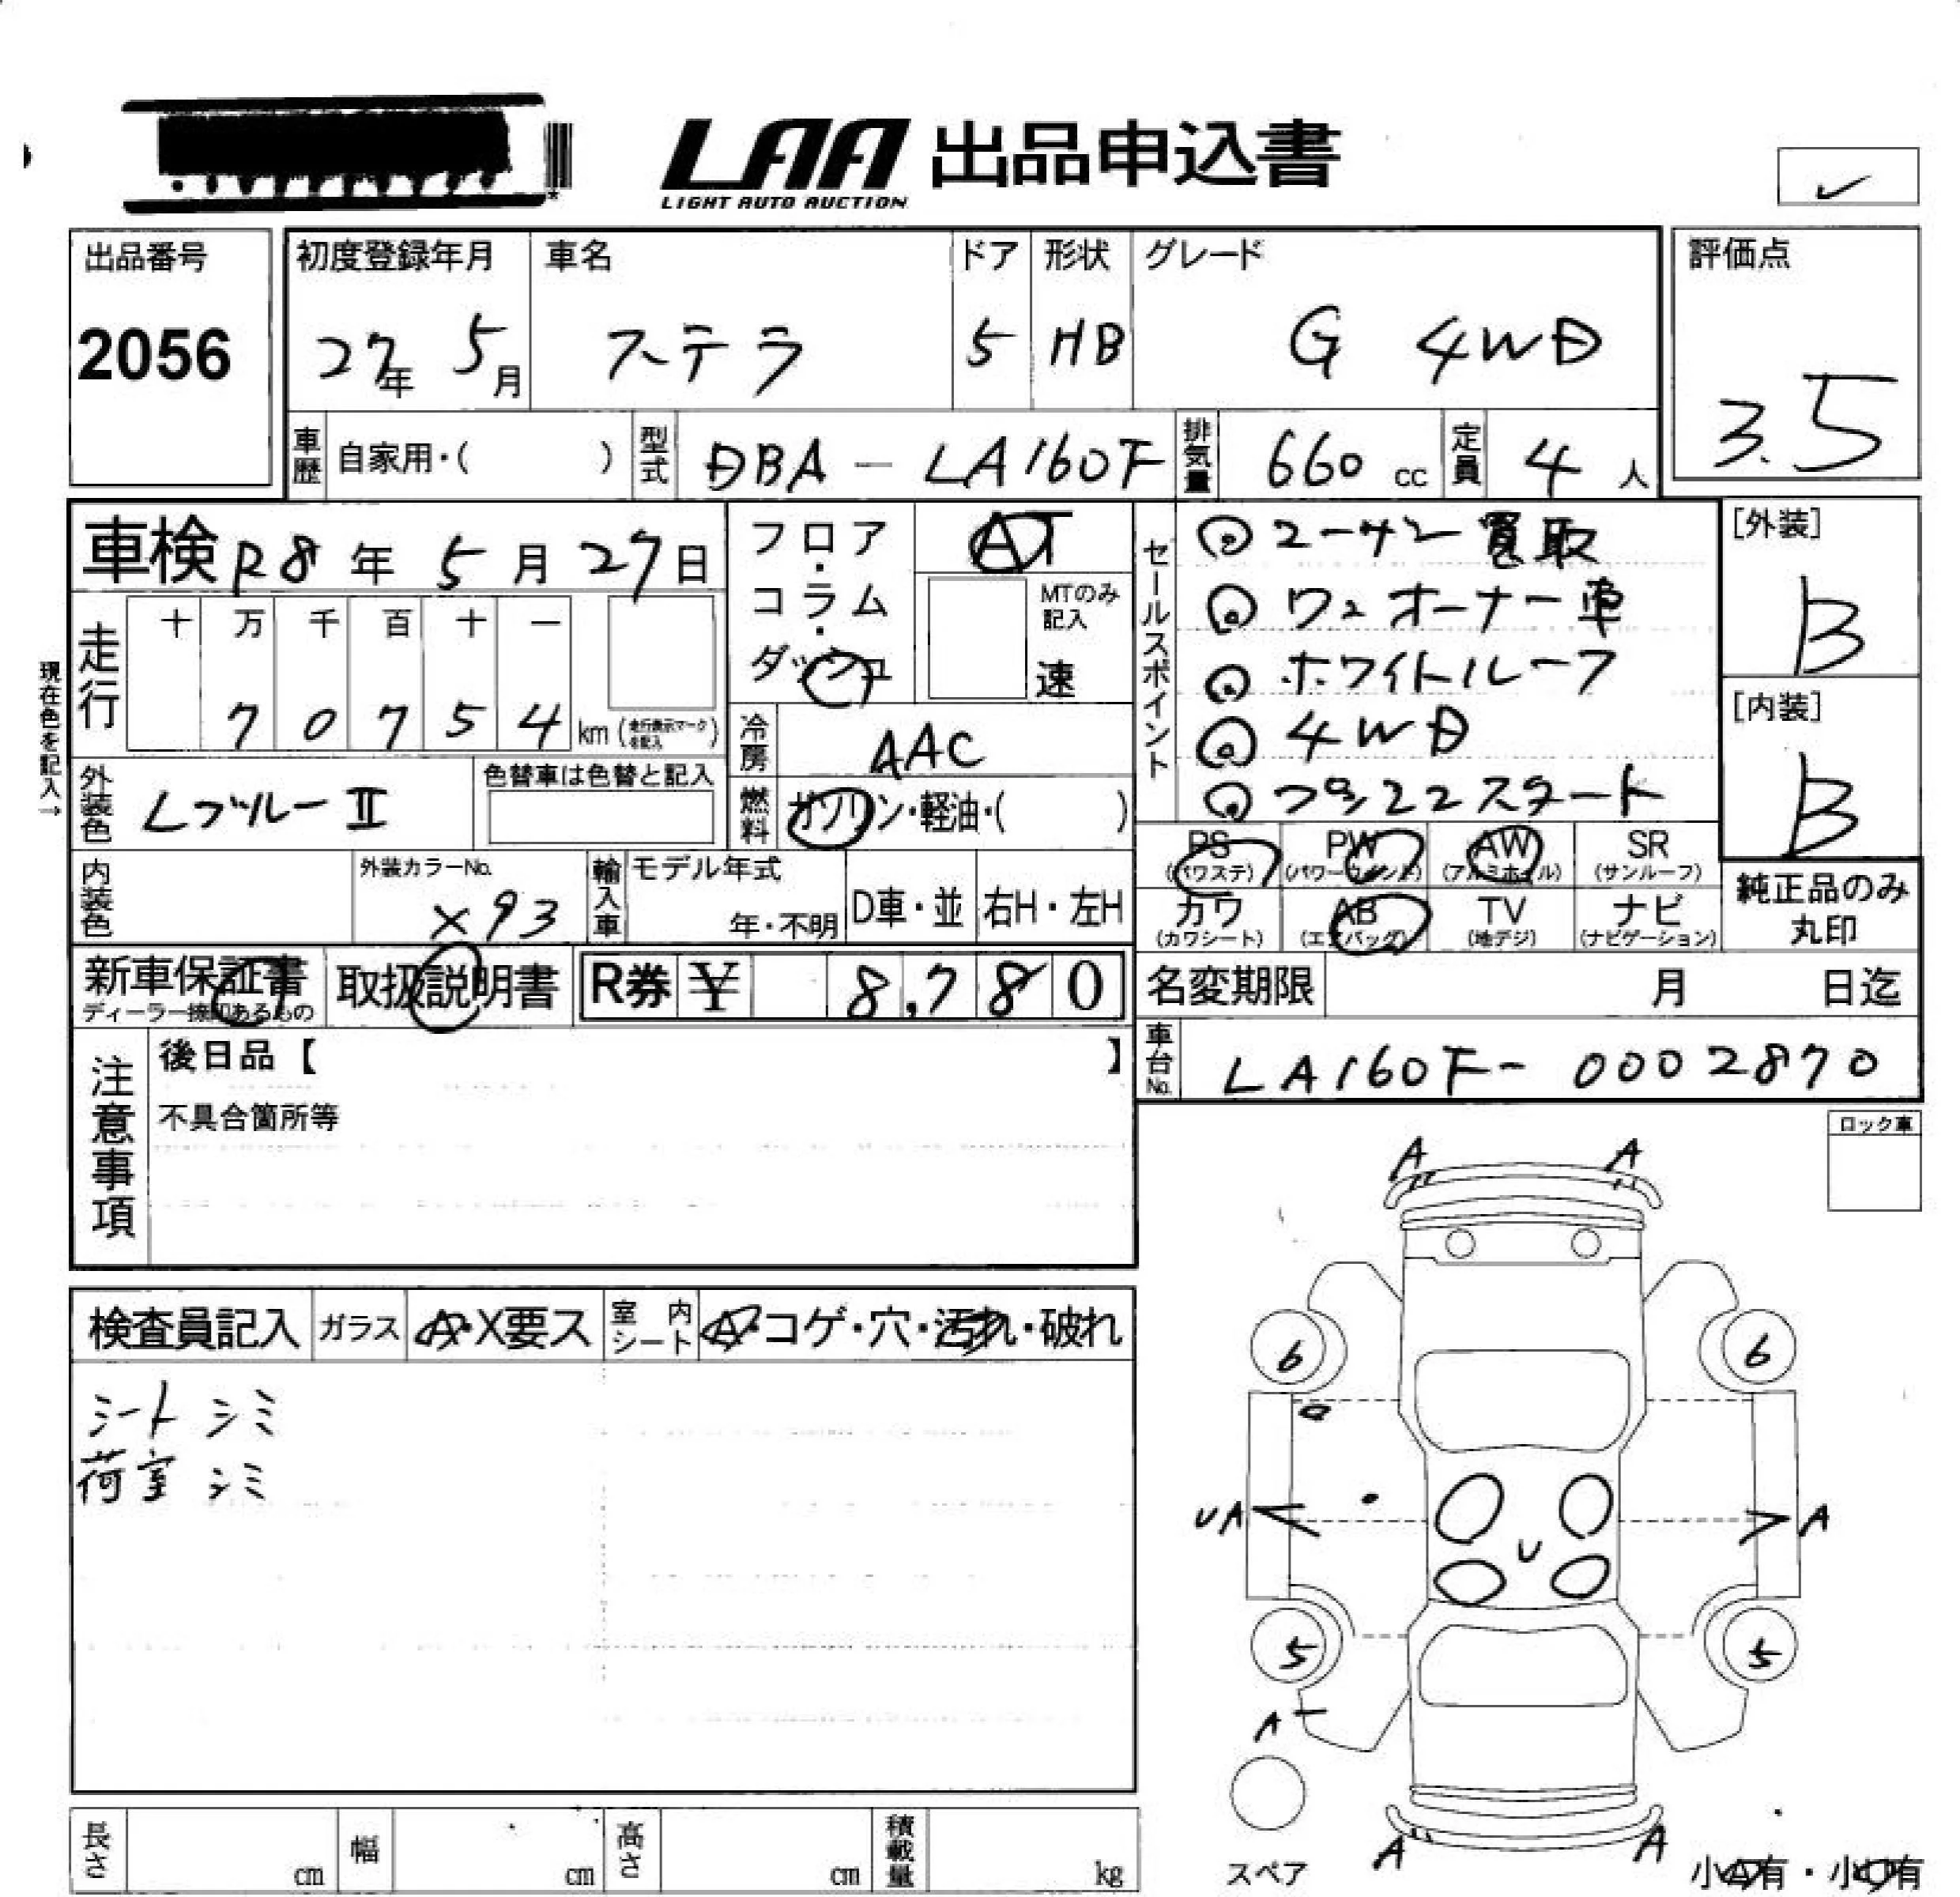 LAA 出品申込書
LIGHT AUTO AUCTION
出品番号
2056
初度登録年月
27年 5月
車名
ステラ
ドア
5
形状
HB
グレード
G 4WD
評価点
3.5
車歴 自家用・( )
型式 DBA-LA160F
排気量 660 cc
定員 4 人
車検 R8年 5月 27日
現在色を記入→
走行
十 万 千 百 十 一
7 0 7 5 4 km
外装色 Lブルー II
色替車は色替と記入
フロア・コラム・ダッシュ
AT
MTのみ記入
速
冷房 AAC
燃料 ガソリン・軽油・( )
セールスポイント
ユーザー買取
ワンオーナー車
ホワイトルーフ
4WD
スタート
[外装]
B
[内装]
B
内装色
外装カラーNo.
X93
輸入車
モデル年式
年・不明
D車・並
右H・左H
PS
(パワステ)
PW
(パワーウインド)
AW
(アルミホイル)
SR
(サンルーフ)
カワ
(カワシート)
AB
(エアバッグ)
TV
(地デジ)
ナビ
(ナビゲーション)
純正品のみ
丸印
新車保証書
ディーラー捺印あるもの
取扱説明書
R券 ¥ 8,780
名変期限 月 日迄
車台No. LA160F-0002870
注意事項
後日品【 】
不具合箇所等
ロック車
検査員記入
ガラス A・X要ス
室内シート A・コゲ・穴・汚れ・破れ
シート シミ
荷室 シミ
A A
6 6
UA A
U
5 5
A
A A
スペア
小A有・小U有
長さ cm
幅 cm
高さ cm
積載量 kg